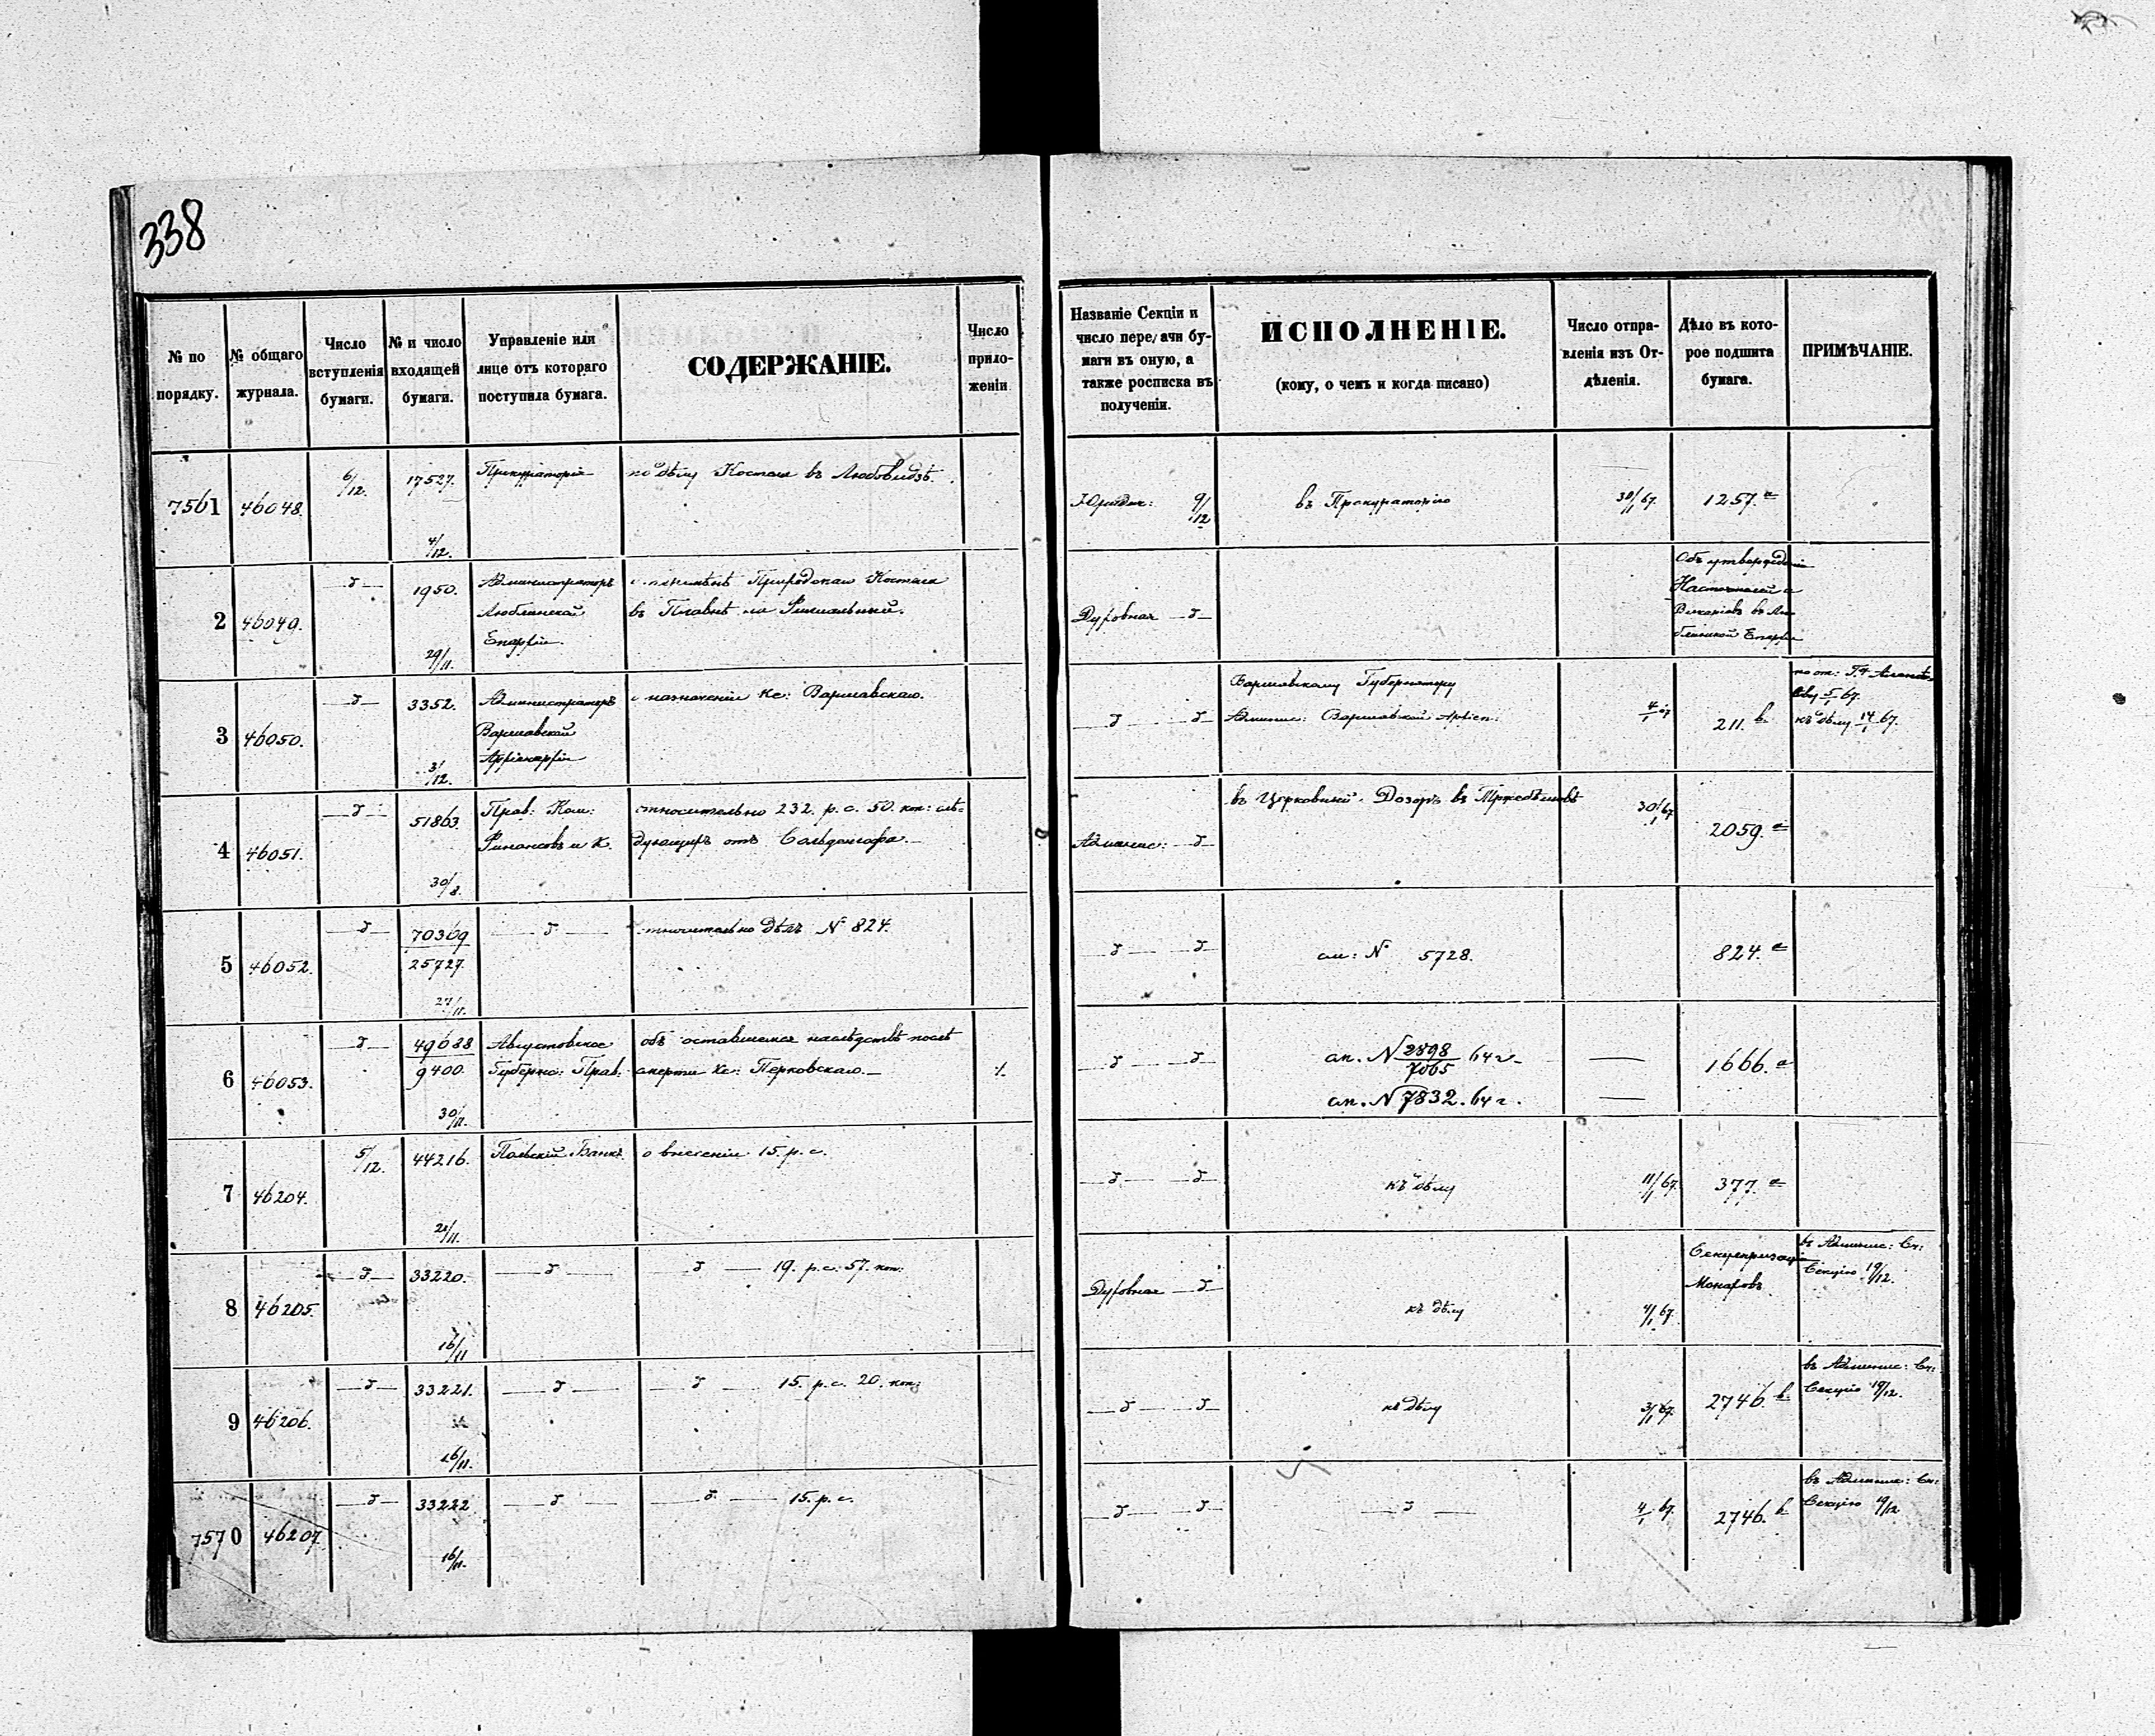 338
№ по
порядку.
№ общаго
журнала.
Число
вступленія
бумаги.
№ и число
входящей
бумаги.
Управленіе или
лице отъ котораго
поступила бумага.
СОДЕРЖАНІЕ.
Число
прило-
женій
Названіе Секціи и
число передачи бу-
маги въ оную, а
также росписка въ
полученіи.
ИСПОЛНЕНІЕ.
(кому, о чемъ и когда писано)
Число отпра-
вленія изъ От-
дѣленія.
Дѣло въ кото-
рое подшита
бумага.
ПРИМѢЧАНІЕ.
7561
46048.
6/12.
17527.
4/12.
Прокураторія
по дѣлу Костела въ Любовидзѣ.
Юридич: 9/12
въ Прокураторію
30/1 67.
1257. а
2
46049.
—д—
1950.
29/11.
Администраторъ
Люблинской
Епархіи.
Костела
въ Плавнѣ на Филіальный.
Духовная —д—
Объ утвержденіи
Настоятелей и
Викаріевъ въ Лю-
блинской Епархіи
3
46050.
—д—
3352.
3/12.
Администраторъ
Варшавской
Архіепархіи
о назначеніи Кс: Варшавскаго.
—д— —д—
Варшавскому Губернатору
Админис: Варшавской Архіеп:
4/1 67
211. b.
къ дѣлу 14/1 67.
4
46051.
—д—
51863.
30/8.
Прав: Ком:
Финансовъ и К.
относительно 232. р. с. 50. коп: слѣ-
дующихъ отъ
Админис: —д—
въ Церковный Дозоръ въ
30/1 67
2059. а
5
46052.
—д—
70369
25727.
27/11.
—д—
относительно дѣлъ № 824.
—д— —д—
см: № 5728.
824. а
6
46053.
—д—
49688
9400.
30/11.
Августовское
Губерн: Прав:
объ оставшемся наслѣдствѣ послѣ
смерти Кс: Перковскаго.—
1.
—д— —д—
см. № 2898/7065 64 г.
см. № 7832. 64 г.
1666. а
7
46204.
5/12.
44216.
21/11.
Польскій Банкъ.
о внесеніи 15. р. с.
—д— —д—
къ дѣлу
11/1 67.
377. а
8
46205.
—д—
33220.
16/11
—д—
—д— 19. р. с. 57. коп:
Духовная —д—
къ дѣлу
4/1 67.
Монаховъ
въ Админис: Сч:
Секцію 19/12.
9
46206.
—д—
33221.
16/11.
—д—
—д— 15. р. с. 20. коп:
—д— —д—
къ дѣлу
3/1 67.
2746. b.
въ Админис: Сч:
Секцію 19/12.
7570
46207.
—д—
33222
16/11.
—д—
—д— 15. р. с.
—д— —д—
—д—
4/1 67.
2746. b
въ Админис: Сч:
Секцію 19/12.